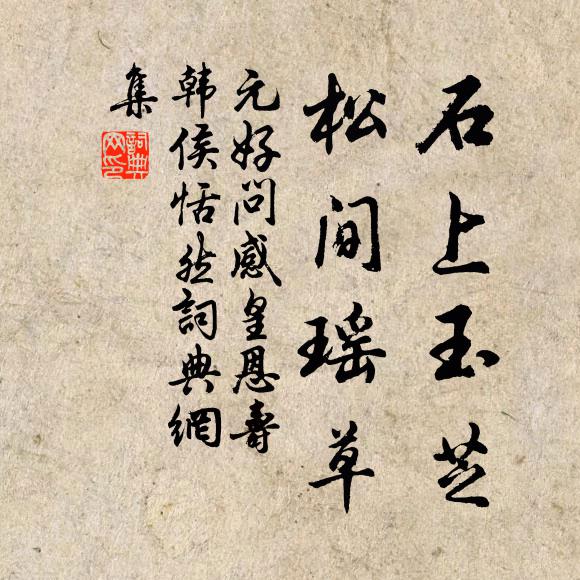 石上玉芝
松间瑶草
元好问感皇恩寿
韩侯恬然詞典網
集
詞典
网印